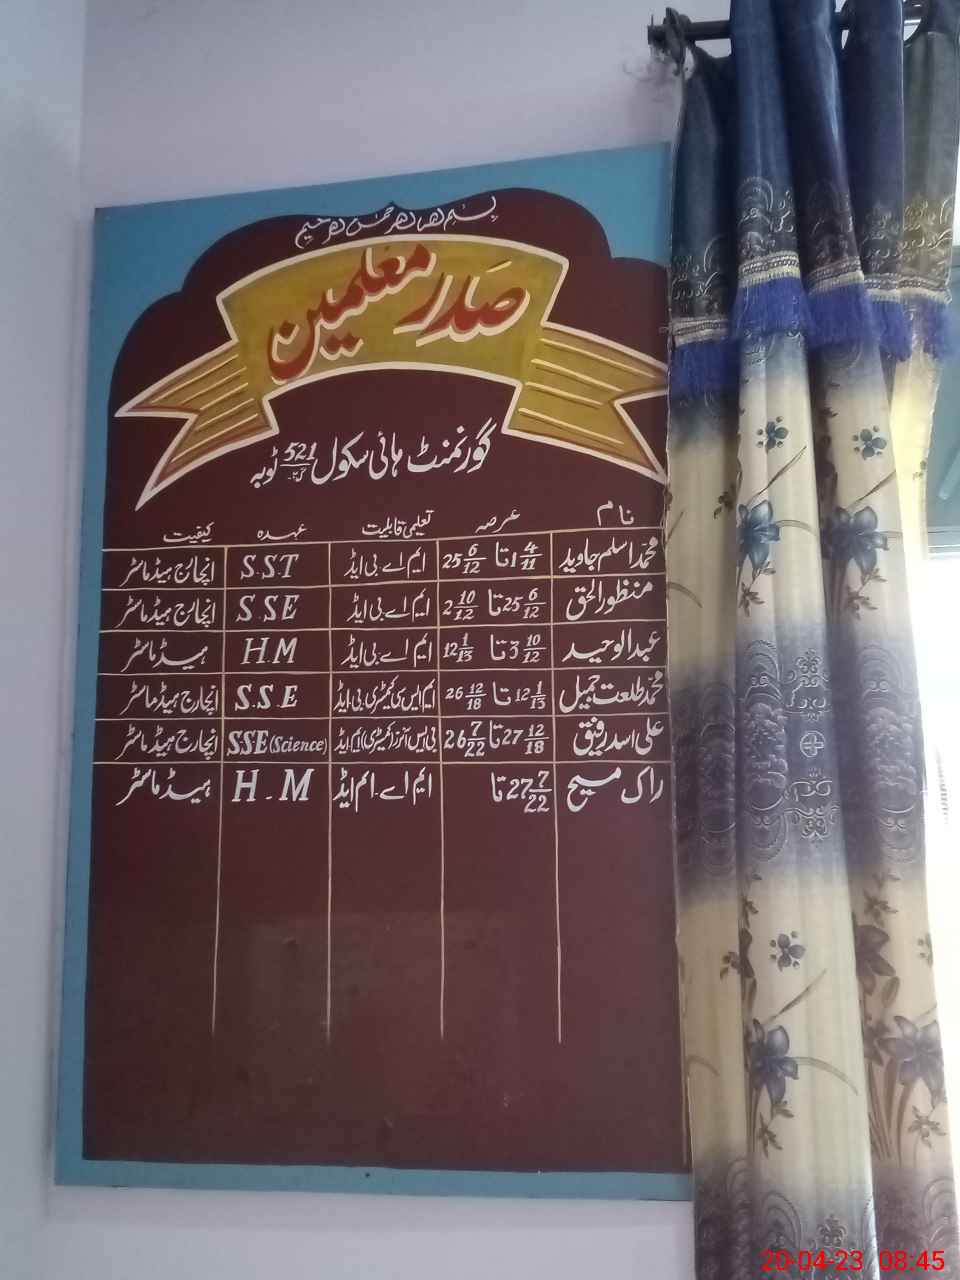 بسم اللہ الرحمن الرحیم
صدر معلمین
گورنمنٹ ہائی سکول 521 گ ب ٹوبہ
نام عرصہ تعلیمی قابلیت عہدہ کیفیت
محمد اسلم جاوید 1 4/11 تا 25 6/12 ایم اے بی ایڈ S.S.T انچارج ہیڈ ماسٹر
منظور الحق 25 6/12 تا 2 10/12 ایم اے بی ایڈ S.SE انچارج ہیڈ ماسٹر
عبدالوحید 3 10/12 تا 12 1/15 ایم اے بی ایڈ H.M ہیڈ ماسٹر
محمد طلعت جمیل 12 1/15 تا 26 12/18 ایم ایس سی کیمسٹری بی ایڈ S.S.E انچارج ہیڈ ماسٹر
علی اسد رفیق 27 12/18 تا 26 7/22 بی ایس آنرز (کیمسٹری) ایم ایڈ SSE (Science) انچارج ہیڈ ماسٹر
راک مسیح 27 7/22 تا ایم اے۔ ام ایڈ H.M ہیڈ ماسٹر
20-04-23 08:45